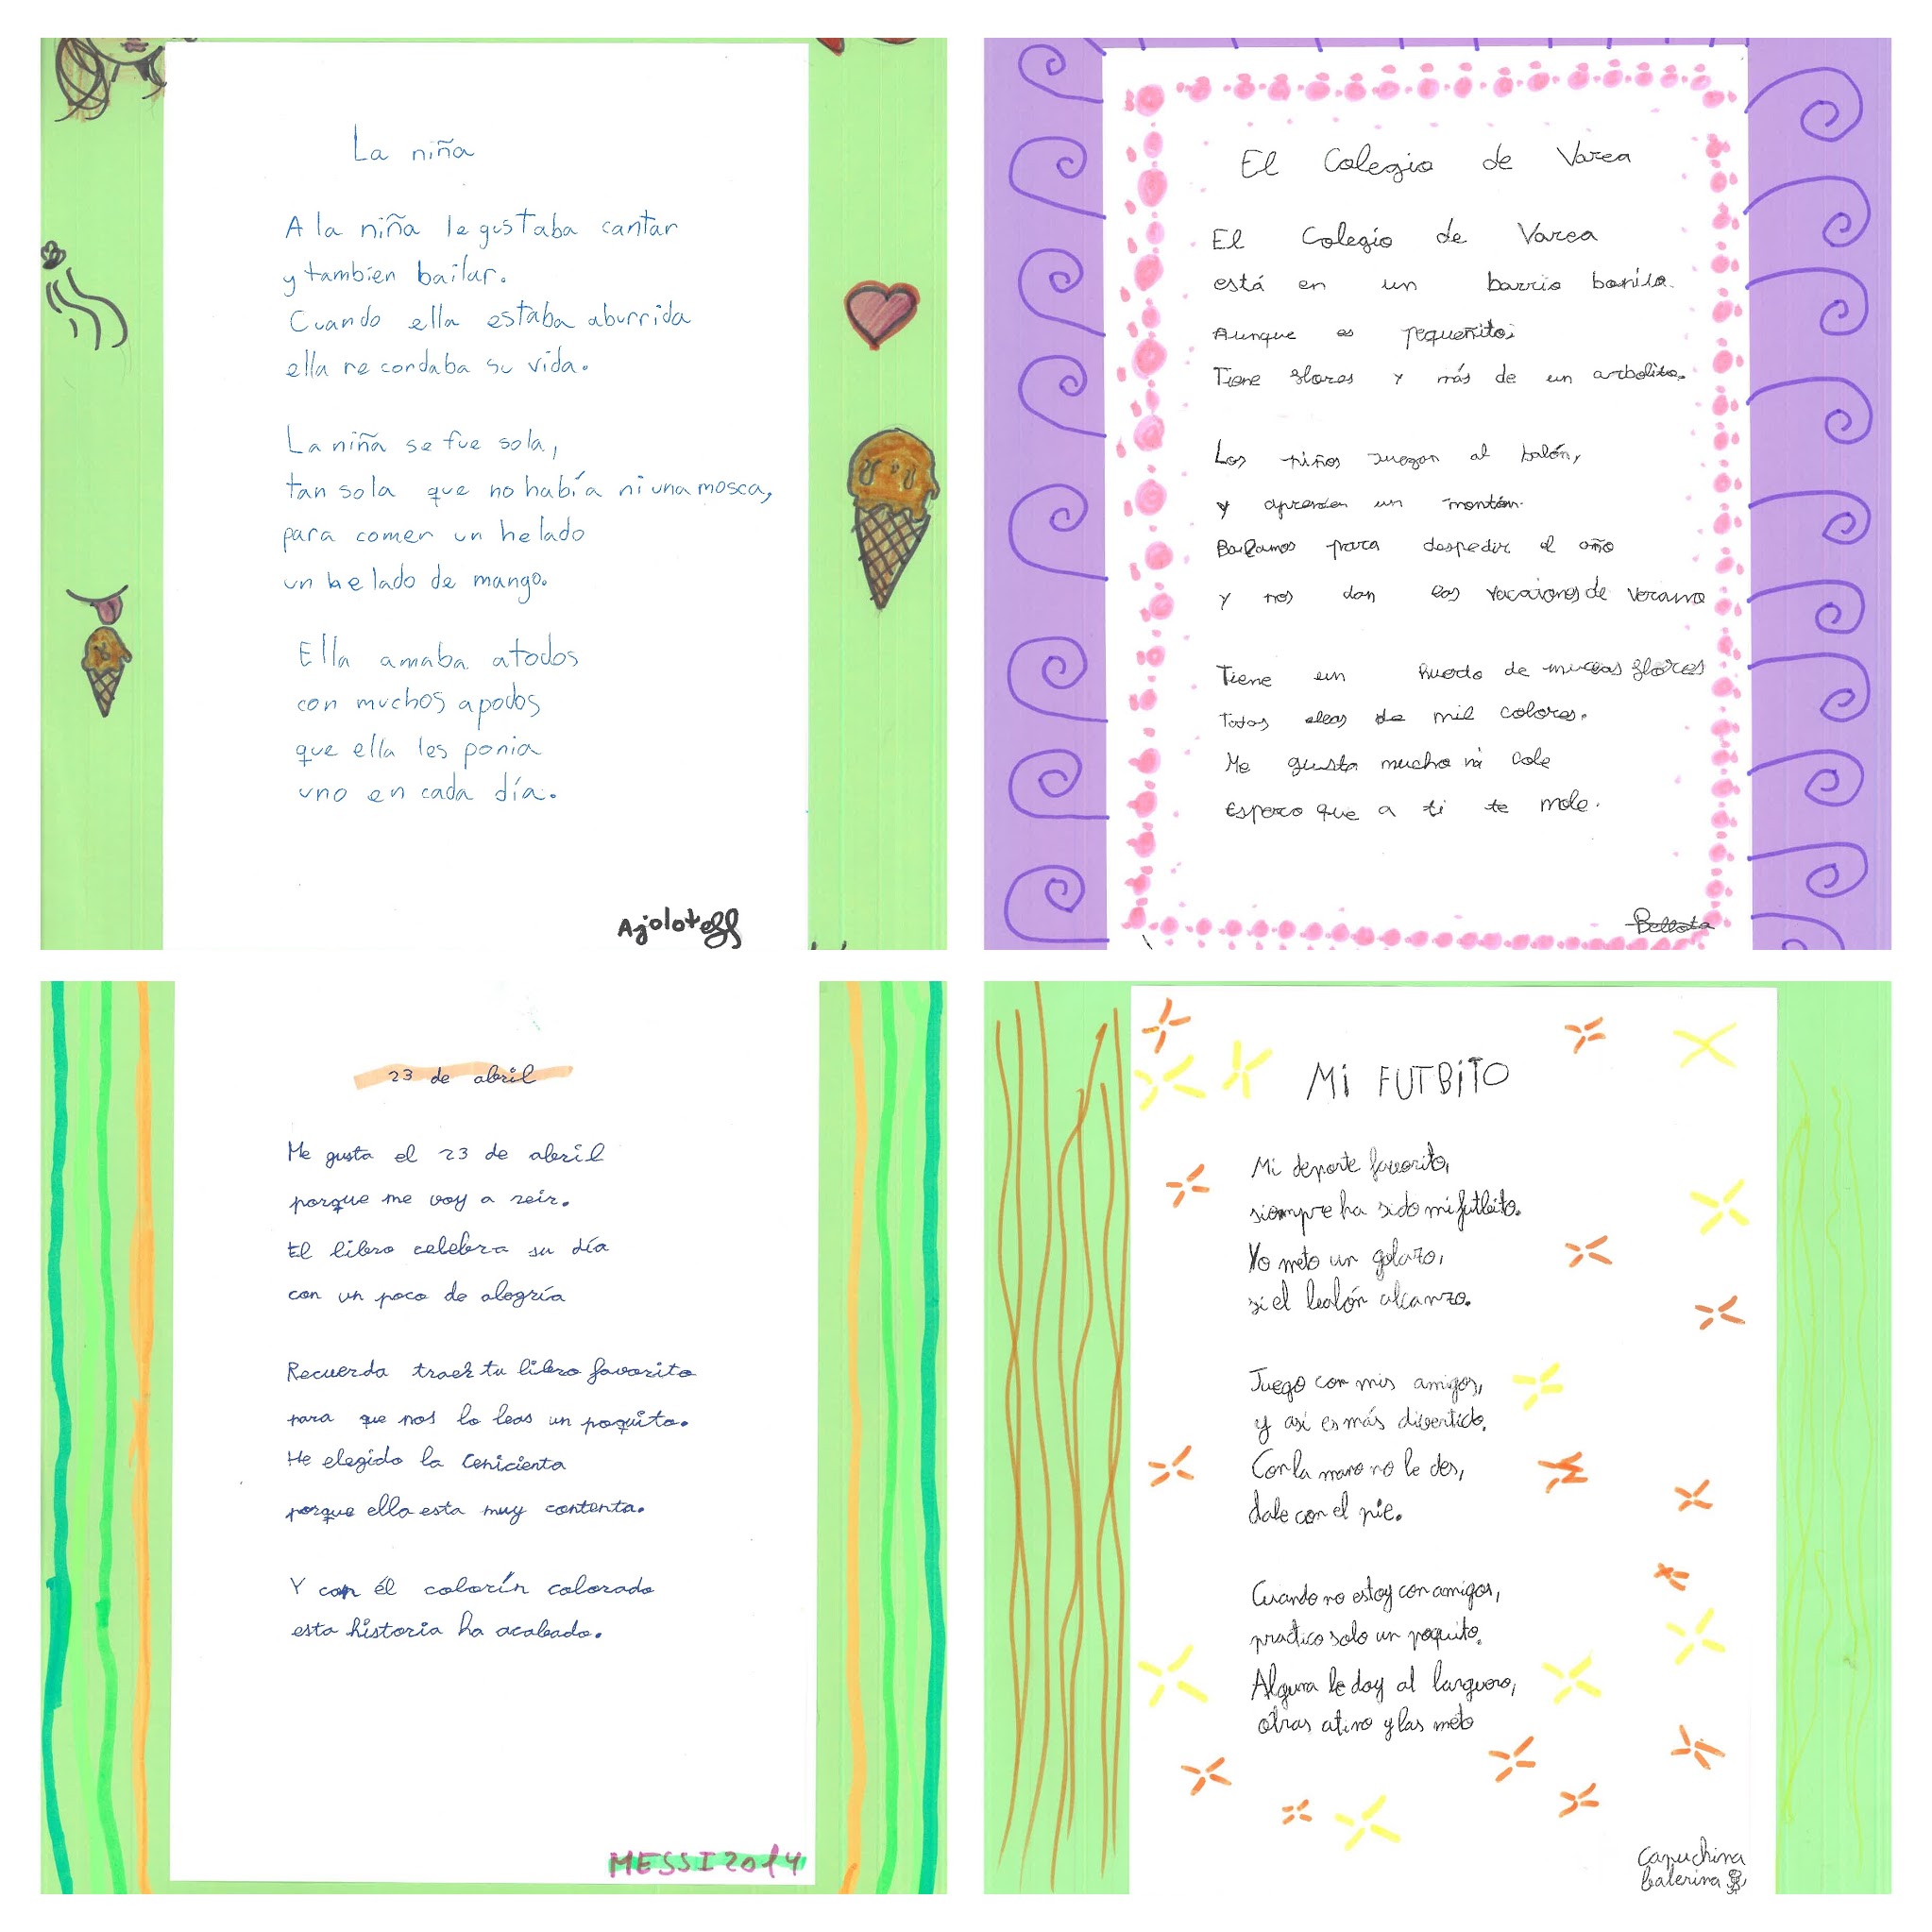 La niña
A la niña le gustaba cantar
y tambien bailar.
Cuando ella estaba aburrida
ella recordaba su vida.
La niña se fue sola,
tan sola que no había ni una mosca,
para comer un helado
un helado de mango.
Ella amaba atodos
con muchos apodos
que ella les ponia
uno en cada día.
Ajolotess
El Colegio de Varea
El Colegio de Varea
está en un barrio bonito.
Aunque es pequeñito;
Tiene flores y más de un arbolito.
Los niños juegan al balón,
y aprenden un montón.
Bailamos para despedir el año
y nos dan las vacaiones de verano
Tiene un huerto de muchas flores
Todas ellas de mil colores.
Me gusta mucho mi cole
Espero que a ti te mole.
Bellota
23 de abril
Me gusta el 23 de abril
porque me voy a reir.
El libro celebra su día
con un poco de alegría
Recuerda traer tu libro favorito
para que nos lo leas un poquito.
He elegido la Cenicienta
porque ella esta muy contenta.
Y con él colorín colorado
esta historia ha acabado.
MESSI2014
Mi FUTBiTO
Mi deporte favorito,
siempre ha sido mi futbito.
Yo meto un golazo,
si el balón alcanzo.
Juego con mis amigos,
y así es más divertido.
Con la mano no le des,
dale con el pie.
Cuando no estoy con amigos,
practico solo un poquito.
Alguna le doy al larguero,
otras atino y las meto
capuchina
balerina